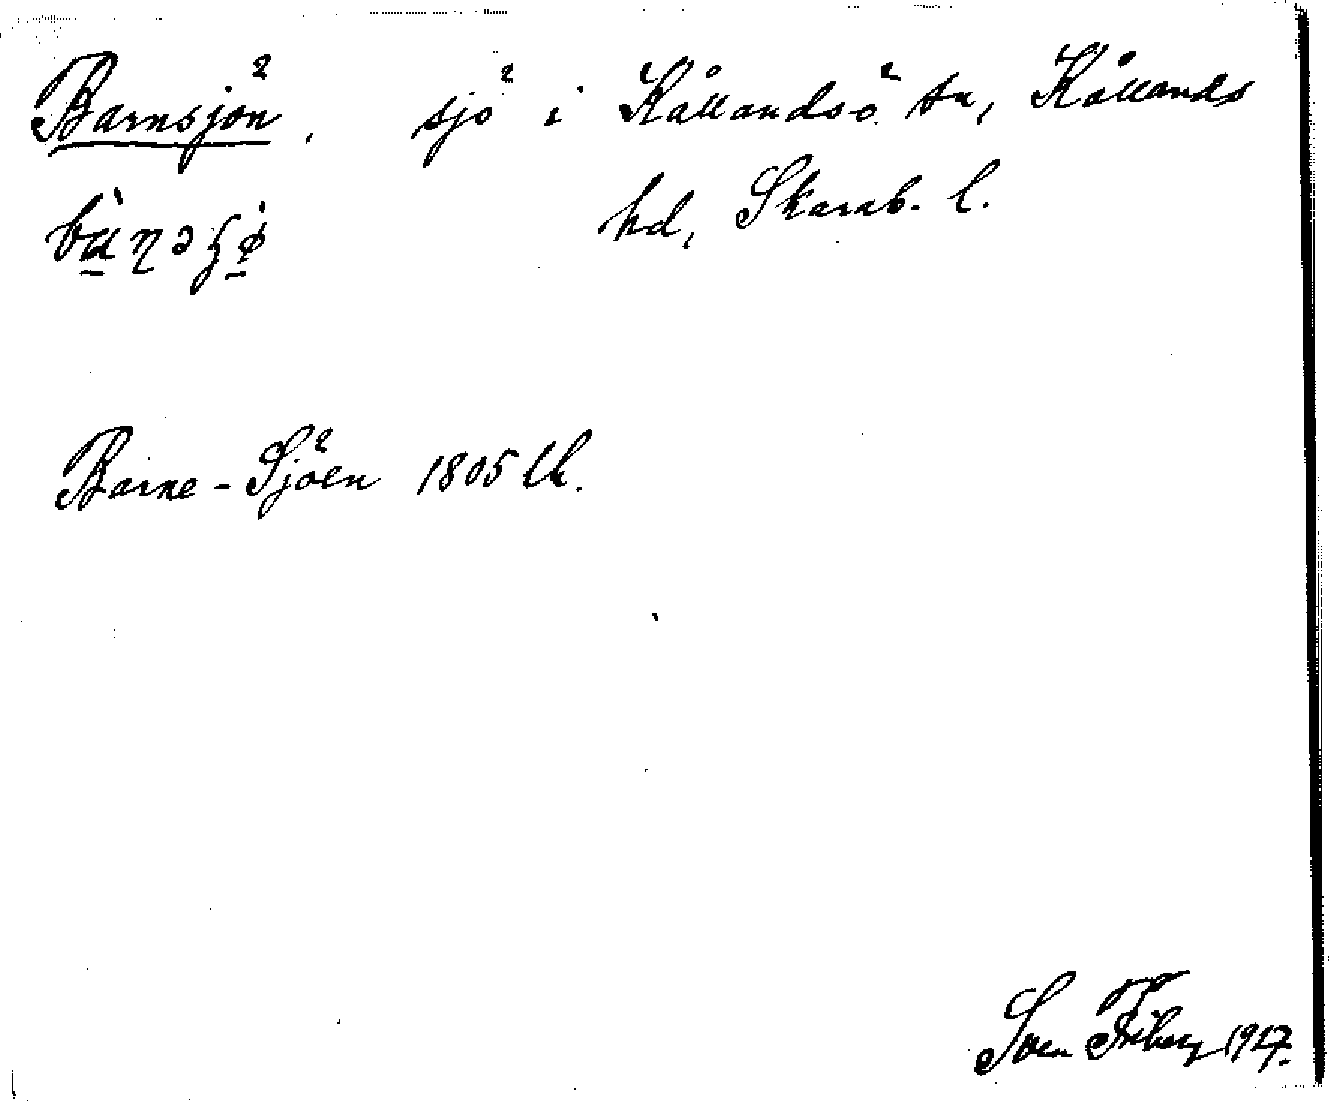 Barnsjön, sjö i Kållandsö sn, Kållands
hd, Skarab. l.
Barne-Sjöen 1805 lk.
Sven Friberg 1927.